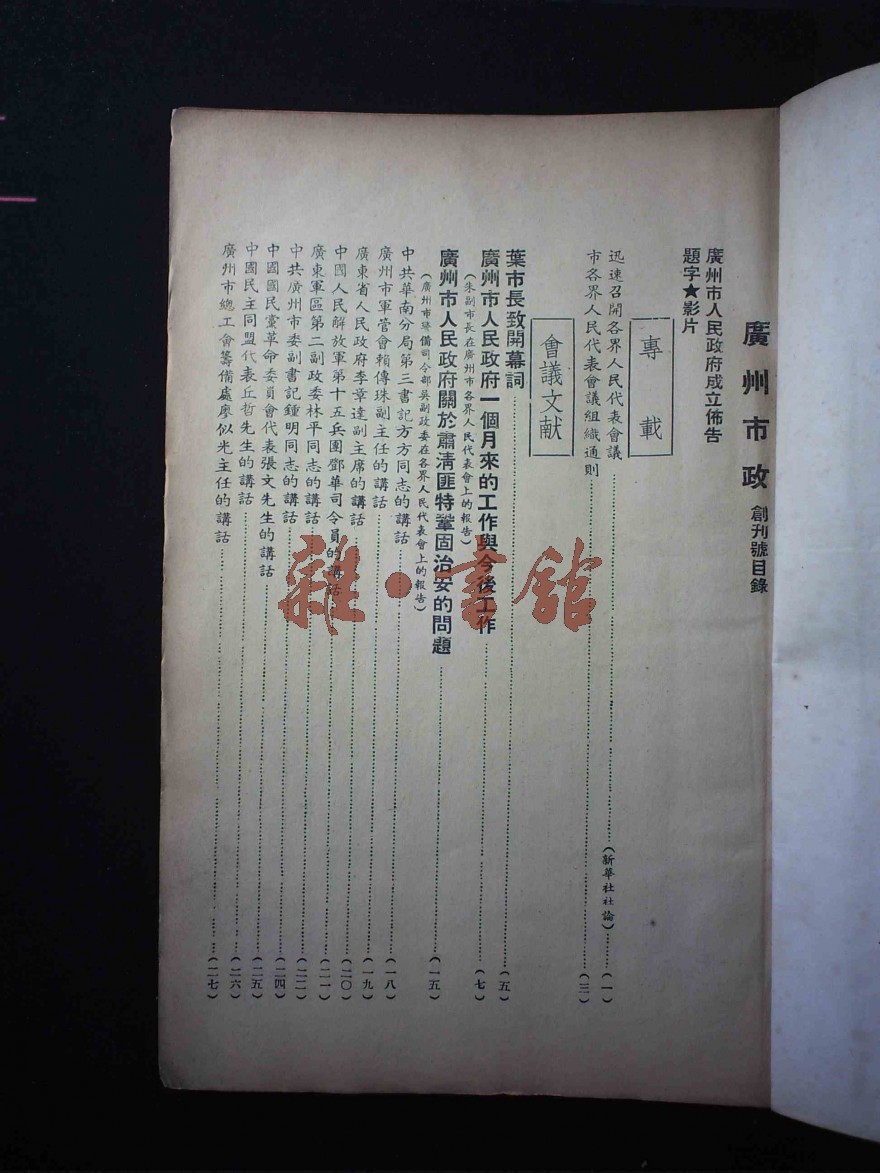 廣州市政 創刊號目錄
廣州市人民政府成立佈告
題字★影片
專載
迅速召開各界人民代表會議……(新華社社論)……(一)
市各界人民代表會議組織通則……(三)
會議文献
葉市長致開幕詞……(五)
廣州市人民政府一個月來的工作與今後工作……(七)
(朱副市長在廣州市各界人民代表會上的報告)
廣州市人民政府關於肅清匪特鞏固治安的問題……(一五)
(廣州市警備司令部吳副政委在各界人民代表會上的報告)
中共華南分局第三書記方方同志的講話……(一八)
廣州市軍管會賴傳珠副主任的講話……(一九)
廣東省人民政府李章達副主席的講話……(二〇)
中國人民解放軍第十五兵團鄧華司令員的講話……(二一)
廣東軍區第二副政委林平同志的講話……(二二)
中共廣州市委副書記鍾明同志的講話……(二四)
中國國民黨革命委員會代表張文先生的講話……(二五)
中國民主同盟代表丘哲先生的講話……(二六)
廣州市總工會籌備處廖似光主任的講話……(二七)
雜·書館